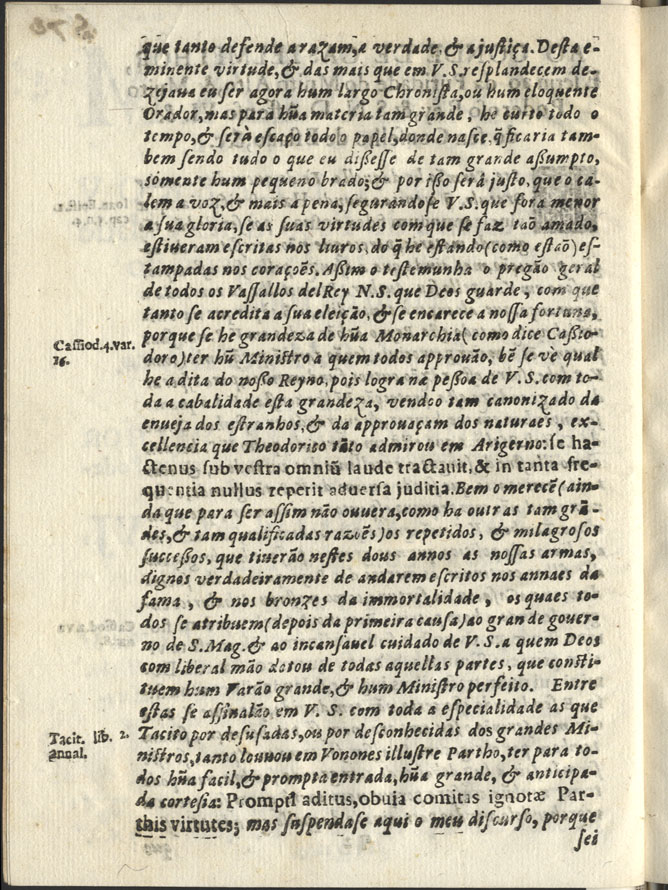 que tanto defende a razam, a verdade, & a justiça. Desta e-
minente virtude, & das mais que em V. S. resplandecem de-
zejaua eu ser agora hum largo Chronista, ou hum eloquente
Orador, mas para hũa materia tam grande, he curto todo o
tempo, & serà escaço todo o papel, donde nasce, q̃ ficaria tam-
bem sendo tudo o que eu dissesse de tam grande assumpto,
sómente hum pequeno brado; & por isso serà justo, que o ca-
lem a voz, & mais a pena, segurandose V. S. que fora menor
a sua gloria, se as suas virtudes com que se faz taõ amado,
estiueram escritas nos liuros, do q̃ he estando (como estaõ) es-
tampadas nos coraçoẽs. Assim o testemunha o pregão geral
de todos os Vassallos delRey N. S. que Deos guarde, com que
tanto se acredita a sua eleição, & se encarece a nossa fortuna,
porque se he grandeza de hũa Monarchia (como dice Cassio-
doro) ter hũ Ministro a quem todos approuão, bẽ se ve qual
Cassiod. 4. var.
16.
he a dita do nosso Reyno, pois logra na pessoa de V. S. com to-
da a cabalidade esta grandeza, vendoo tam canonizado da
enueja dos estranhos, & da approuaçam dos naturaes, ex-
cellencia que Theodorico tãto admirou em Arigerno: se ha-
ctenus sub vestra omniũ laude tractauit, & in tanta fre-
quentia nullus reperit aduersa juditia. Bem o merecẽ (ain-
da que para ser assim não ouuera, como ha outras tam grã-
des, & tam qualificadas razoẽs) os repetidos, & milagrosos
successos, que tiuerão nestes dous annos as nossas armas,
dignos verdadeiramente de andarem escritos nos annaes da
fama, & nos bronzes da immortalidade, os quaes to-
dos se atribuem (depois da primeira causa) ao grande gouer-
no de S. Mag. & ao incansauel cuidado de V. S. a quem Deos
com liberal mão dotou de todas aquellas partes, que consti-
tuem hum Varão grande, & hum Ministro perfeito. Entre
estas se assinalão em V. S. com toda a especialidade as que
Tacito por desusadas, ou por desconhecidas dos grandes Mi-
Tacit. lib. 2.
annal.
nistros, tanto louuou em Vonones illustre Partho, ter para to-
dos hũa facil, & prompta entrada, hũa grande, & anticipa-
da cortesia: Prompti aditus, obuia comitas ignotæ Par-
this virtutes; mas suspendase aqui o meu discurso, porque
sei